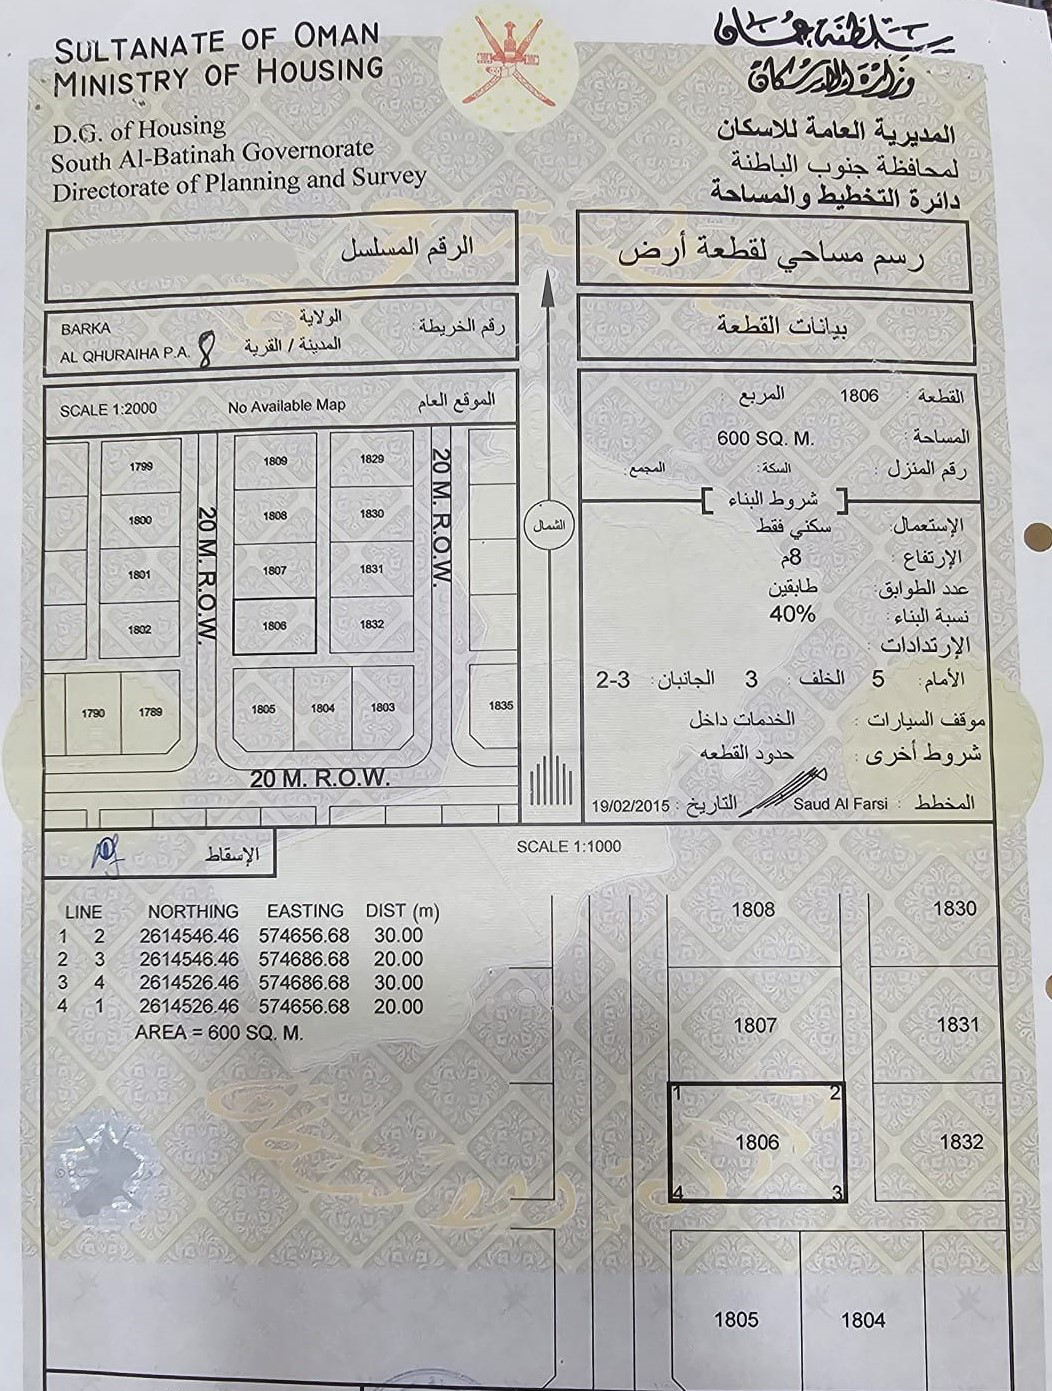 SULTANATE OF OMAN
MINISTRY OF HOUSING
D.G. of Housing
South Al-Batinah Governorate
Directorate of Planning and Survey
سلطنة عمان
وزارة الإسكان
المديرية العامة للاسكان
لمحافظة جنوب الباطنة
دائرة التخطيط والمساحة
الرقم المسلسل
رسم مساحي لقطعة أرض
رقم الخريطة : الولاية BARKA
المدينة / القرية AL QHURAIHA P.A. 8
بيانات القطعة
SCALE 1:2000 No Available Map الموقع العام
1799 1809 1829
1800 1808 1830
1801 1807 1831
1802 1806 1832
1790 1789 1805 1804 1803 1835
20 M. R.O.W.
20 M. R.O.W.
20 M. R.O.W.
الشمال
القطعة : 1806 المربع :
المساحة : 600 SQ. M.
رقم المنزل : السكة: المجمع:
[ شروط البناء ]
الإستعمال: سكني فقط
الإرتفاع : 8م
عدد الطوابق: طابقين
نسبة البناء : 40%
الإرتدادات :
الأمام: 5 الخلف : 3 الجانبان: 3-2
موقف السيارات : الخدمات داخل
شروط أخرى : حدود القطعه
المخطط : Saud Al Farsi التاريخ : 19/02/2015
الإسقاط
SCALE 1:1000
LINE NORTHING EASTING DIST (m)
1 2 2614546.46 574656.68 30.00
2 3 2614546.46 574686.68 20.00
3 4 2614526.46 574686.68 30.00
4 1 2614526.46 574656.68 20.00
AREA = 600 SQ. M.
1808 1830
1807 1831
1 2
1806 1832
4 3
1805 1804